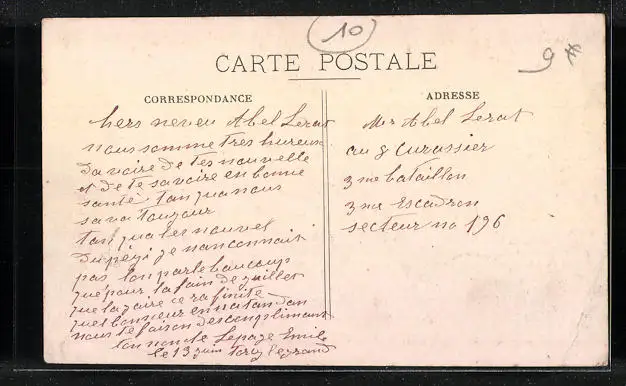 10
9 #
CARTE POSTALE
CORRESPONDANCE
hers neveu Abel Lerat
nous somme tres hureux
davoire de tes nouvelle
et de te savoire en bonne
santé tan qua nous
sa va toujour
tan qua les nouvel
du péyi je nan connais
pas lon parle beaucoup
que pour la fain de juillet
que la zaire ce ra finite
quel bonneur en natandan
nous te faison des compliment
ton noncle Lepage Emile
le 13 juin
ADRESSE
Mr Abel Lerat
au 8 Curassier
3me bataillon
3me Escadron
secteur no 196